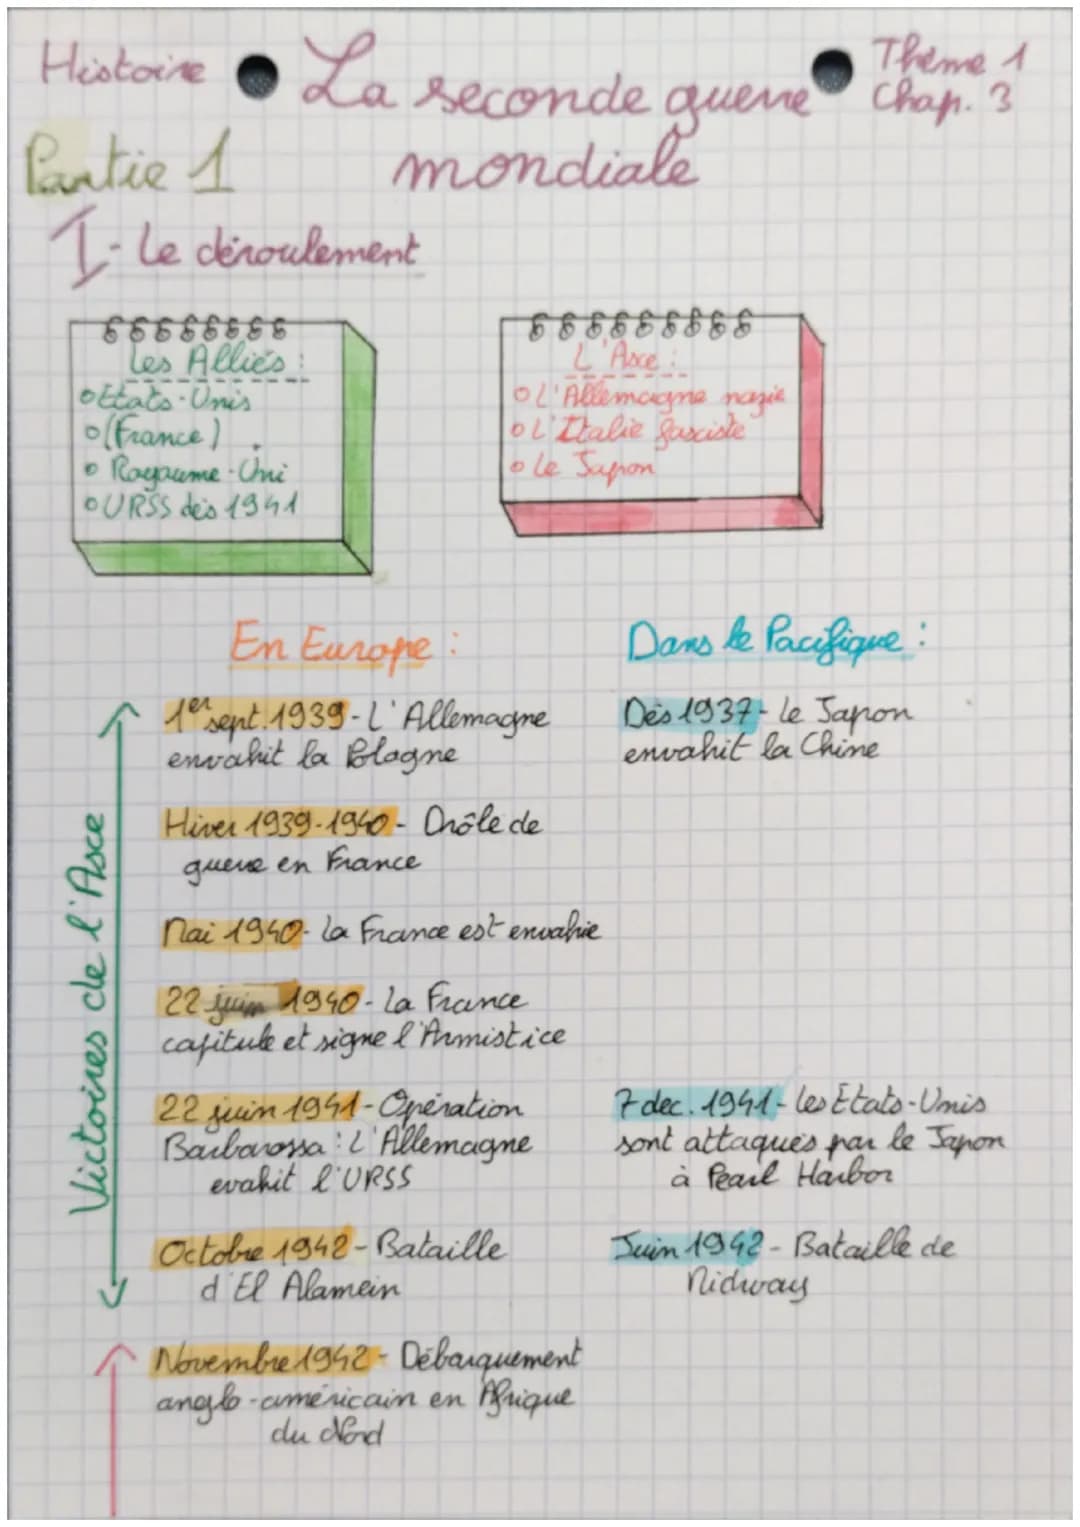 Histoire
La seconde guerre
Thème 1
Chap. 3
Partie 1
mondiale
I- Le déroulement
Les Alliés :
Etats-Unis
(France)
Royaume-Uni
URSS dès 1941
L'Asce :
L'Allemagne nazie
L'Italie fasciste
Le Japon
En Europe :
Victoires de l'Asce
1er sept. 1939 - L'Allemagne
envahit la Pologne
Hiver 1939-1940 - Drôle de
guerre en France
Mai 1940 - La France est envahie
22 juin 1940 - La France
capitule et signe l'Armistice
22 juin 1941 - Opération
Barbarossa : L'Allemagne
evahit l'URSS
Octobre 1942 - Bataille
d'El Alamein
Novembre 1942 - Débarquement
anglo-américain en Afrique
du Nord
Dans le Pacifique :
Dès 1937 - Le Japon
envahit la Chine
7 dec. 1941 - Les Etats-Unis
sont attaqués par le Japon
à Pearl Harbor
Juin 1942 - Bataille de
Midway